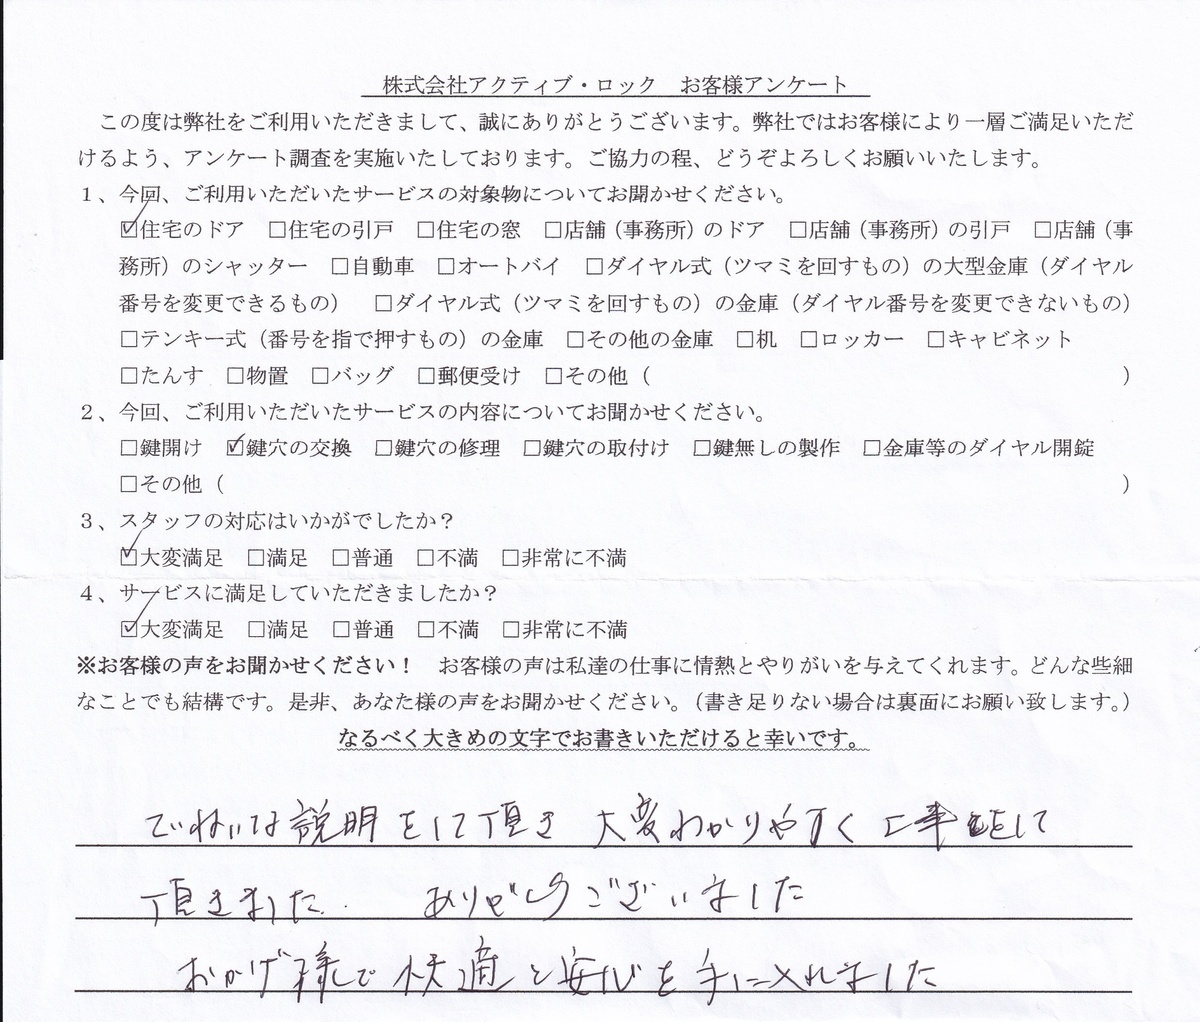 株式会社アクティブ・ロック　お客様アンケート
この度は弊社をご利用いただきまして、誠にありがとうございます。弊社ではお客様により一層ご満足いただ
けるよう、アンケート調査を実施いたしております。ご協力の程、どうぞよろしくお願いいたします。
１、今回、ご利用いただいたサービスの対象物についてお聞かせください。
☑住宅のドア　□住宅の引戸　□住宅の窓　□店舗（事務所）のドア　□店舗（事務所）の引戸　□店舗（事
務所）のシャッター　□自動車　□オートバイ　□ダイヤル式（ツマミを回すもの）の大型金庫（ダイヤル
番号を変更できるもの）　□ダイヤル式（ツマミを回すもの）の金庫（ダイヤル番号を変更できないもの）
□テンキー式（番号を指で押すもの）の金庫　□その他の金庫　□机　□ロッカー　□キャビネット
□たんす　□物置　□バッグ　□郵便受け　□その他（　　　　　　　　　　）
２、今回、ご利用いただいたサービスの内容についてお聞かせください。
□鍵開け　☑鍵穴の交換　□鍵穴の修理　□鍵穴の取付け　□鍵無しの製作　□金庫等のダイヤル開錠
□その他（　　　　　　　　　　）
３、スタッフの対応はいかがでしたか？
☑大変満足　□満足　□普通　□不満　□非常に不満
４、サービスに満足していただきましたか？
☑大変満足　□満足　□普通　□不満　□非常に不満
※お客様の声をお聞かせください！　お客様の声は私達の仕事に情熱とやりがいを与えてくれます。どんな些細
なことでも結構です。是非、あなた様の声をお聞かせください。（書き足りない場合は裏面にお願い致します。）
なるべく大きめの文字でお書きいただけると幸いです。
ていねいな説明をして頂き　大変わかりやすく工事をして
頂きました．　ありがとうございました
おかげ様で快適と安心を手に入れました